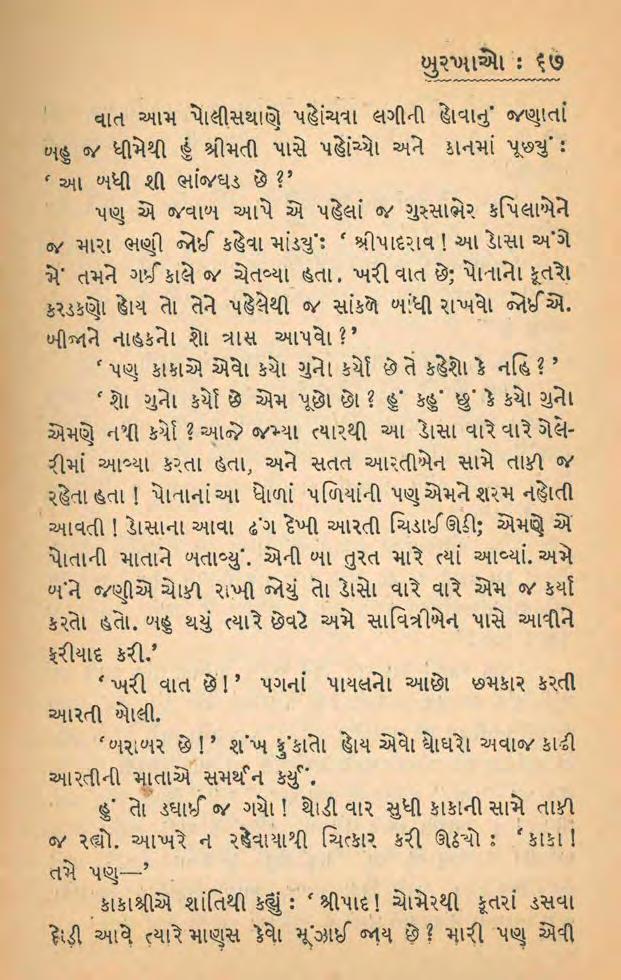 બુરખાઓ : ૬૭
વાત આમ પોલીસથાણે પહોંચવા લગીની હોવાનું જણાતાં
બહુ જ ધીમેથી હું શ્રીમતી પાસે પહોંચ્યો અને કાનમાં પૂછયું :
‘ આ બધી શી ભાંજઘડ છે ?’
પણ એ જવાબ આપે એ પહેલાં જ ગુસ્સાભેર કપિલાબેને
જ મારા ભણી જોઈ કહેવા માંડયું : ‘ શ્રીપાદરાવ ! આ ડોસા અંગે
મેં તમને ગઈ કાલે જ ચેતવ્યા હતા. ખરી વાત છે; પોતાનો કૂતરો
કરડકણો હોય તો તેને પહેલેથી જ સાંકળે બાંધી રાખવો જોઈએ.
બીજાને નાહકનો શો ત્રાસ આપવો ?’
‘ પણ કાકાએ એવો કયો ગુનો કર્યો છે તે કહેશો કે નહિ ? ’
‘ શો ગુનો કર્યો છે એમ પૂછો છો ? હું કહું છું કે કયો ગુનો
એમણે નથી કર્યો ? આજે જમ્યા ત્યારથી આ ડોસા વારે વારે ગેલે-
રીમાં આવ્યા કરતા હતા, અને સતત આરતીબેન સામે તાકી જ
રહેતા હતા ! પોતાનાં આ ધોળાં પળિયાંની પણ એમને શરમ નહોતી
આવતી ! ડોસાના આવા ઢંગ દેખી આરતી ચિડાઈ ઊઠી; એમણે એ
પોતાની માતાને બતાવ્યું. એની બા તુરત મારે ત્યાં આવ્યાં. અમે
બંને જણીએ ચોકી રાખી જોયું તો ડોસો વારે વારે એમ જ કર્યા
કરતો હતો. બહુ થયું ત્યારે છેવટે અમે સાવિત્રીબેન પાસે આવીને
ફરીયાદ કરી.’
‘ ખરી વાત છે ! ’ પગનાં પાયલનો આછો છમકાર કરતી
આરતી બોલી.
‘ બરાબર છે ! ’ શંખ ફુંકાતો હોય એવો ઘોઘરો અવાજ કાઢી
આરતીની માતાએ સમર્થન કર્યું.
હું તો ડઘાઈ જ ગયો ! થોડી વાર સુધી કાકાની સામે તાકી
જ રહ્યો. આખરે ન રહેવાયાથી ચિત્કાર કરી ઊઠયો : ‘ કાકા !
તમે પણ—’
કાકાશ્રીએ શાંતિથી કહ્યું : ‘ શ્રીપાદ ! ચોમેરથી કૂતરાં ડસવા
દોડી આવે ત્યારે માણસ કેવો મૂંઝાઈ જાય છે ? મારી પણ એવી